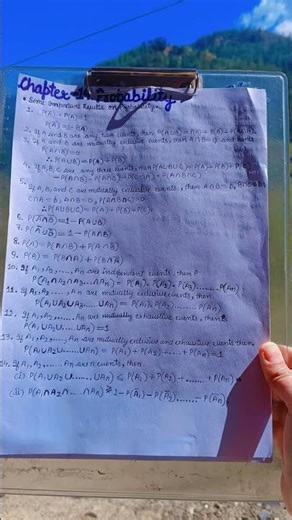 Chapter-14 Probability
• Some important Results on Probability.
1. P(A) + P(Ā) = 1
P(Ā) = 1 - P(A)
2. If A and B are any two events, then P(A∪B) = P(A) + P(B) - P(A∩B)
3. If A and B are mutually exclusive events, then A∩B =
P(A∩B) = 0
∴ P(A∪B) = P(A) + P(B)
4. If A, B, C are any three events, then P(A∪B∪C) = P(A) + P(B) + P(C)
- P(A∩B) - P(B∩C) - P(C∩A) + P(A∩B∩C)
5. If A, B, and C are mutually exclusive events, then A∩B = ∅, B∩C = ∅
C∩A = ∅, A∩B∩C = ∅, P(A∩B∩C) = 0
∴ P(A∪B∪C) = P(A) + P(B) + P(C).
6. P(Ā∩B̄) = 1 - P(A∪B)
7. P(Ā∪B̄) = 1 - P(A∩B)
8. P(A) = P(A∩B) + P(A∩B̄)
9. P(B) = P(B∩A) + P(B∩Ā)
10. If A₁, A₂, ...... An are independent events, then
P(A₁∩A₂∩A₃......∩An) = P(A₁).P(A₂).P(A₃)......P(An)
11. If A₁, A₂, ...... An are mutually exclusive events, then
P(A₁∪A₂∪A₃......∪An) = P(A₁)
12. If A₁, A₂, ...... An are mutually exhaustive events, then
P(A₁∪A₂∪......∪An) = 1
13. If A₁, A₂, ...... An are mutually exclusive and exhaustive events then,
P(A₁∪A₂∪......∪An) = P(A₁) + P(A₂) + ...... + P(An) = 1
14. If A₁, A₂, ...... An are n events, then
(i) P(A₁∪A₂∪......∪An) ≤ P(A₁) + P(A₂) + ...... + P(An)
(ii) P(A₁∩A₂∩...∩An) ≥ 1 - P(Ā₁) - P(Ā₂) ...... - P(Ān)